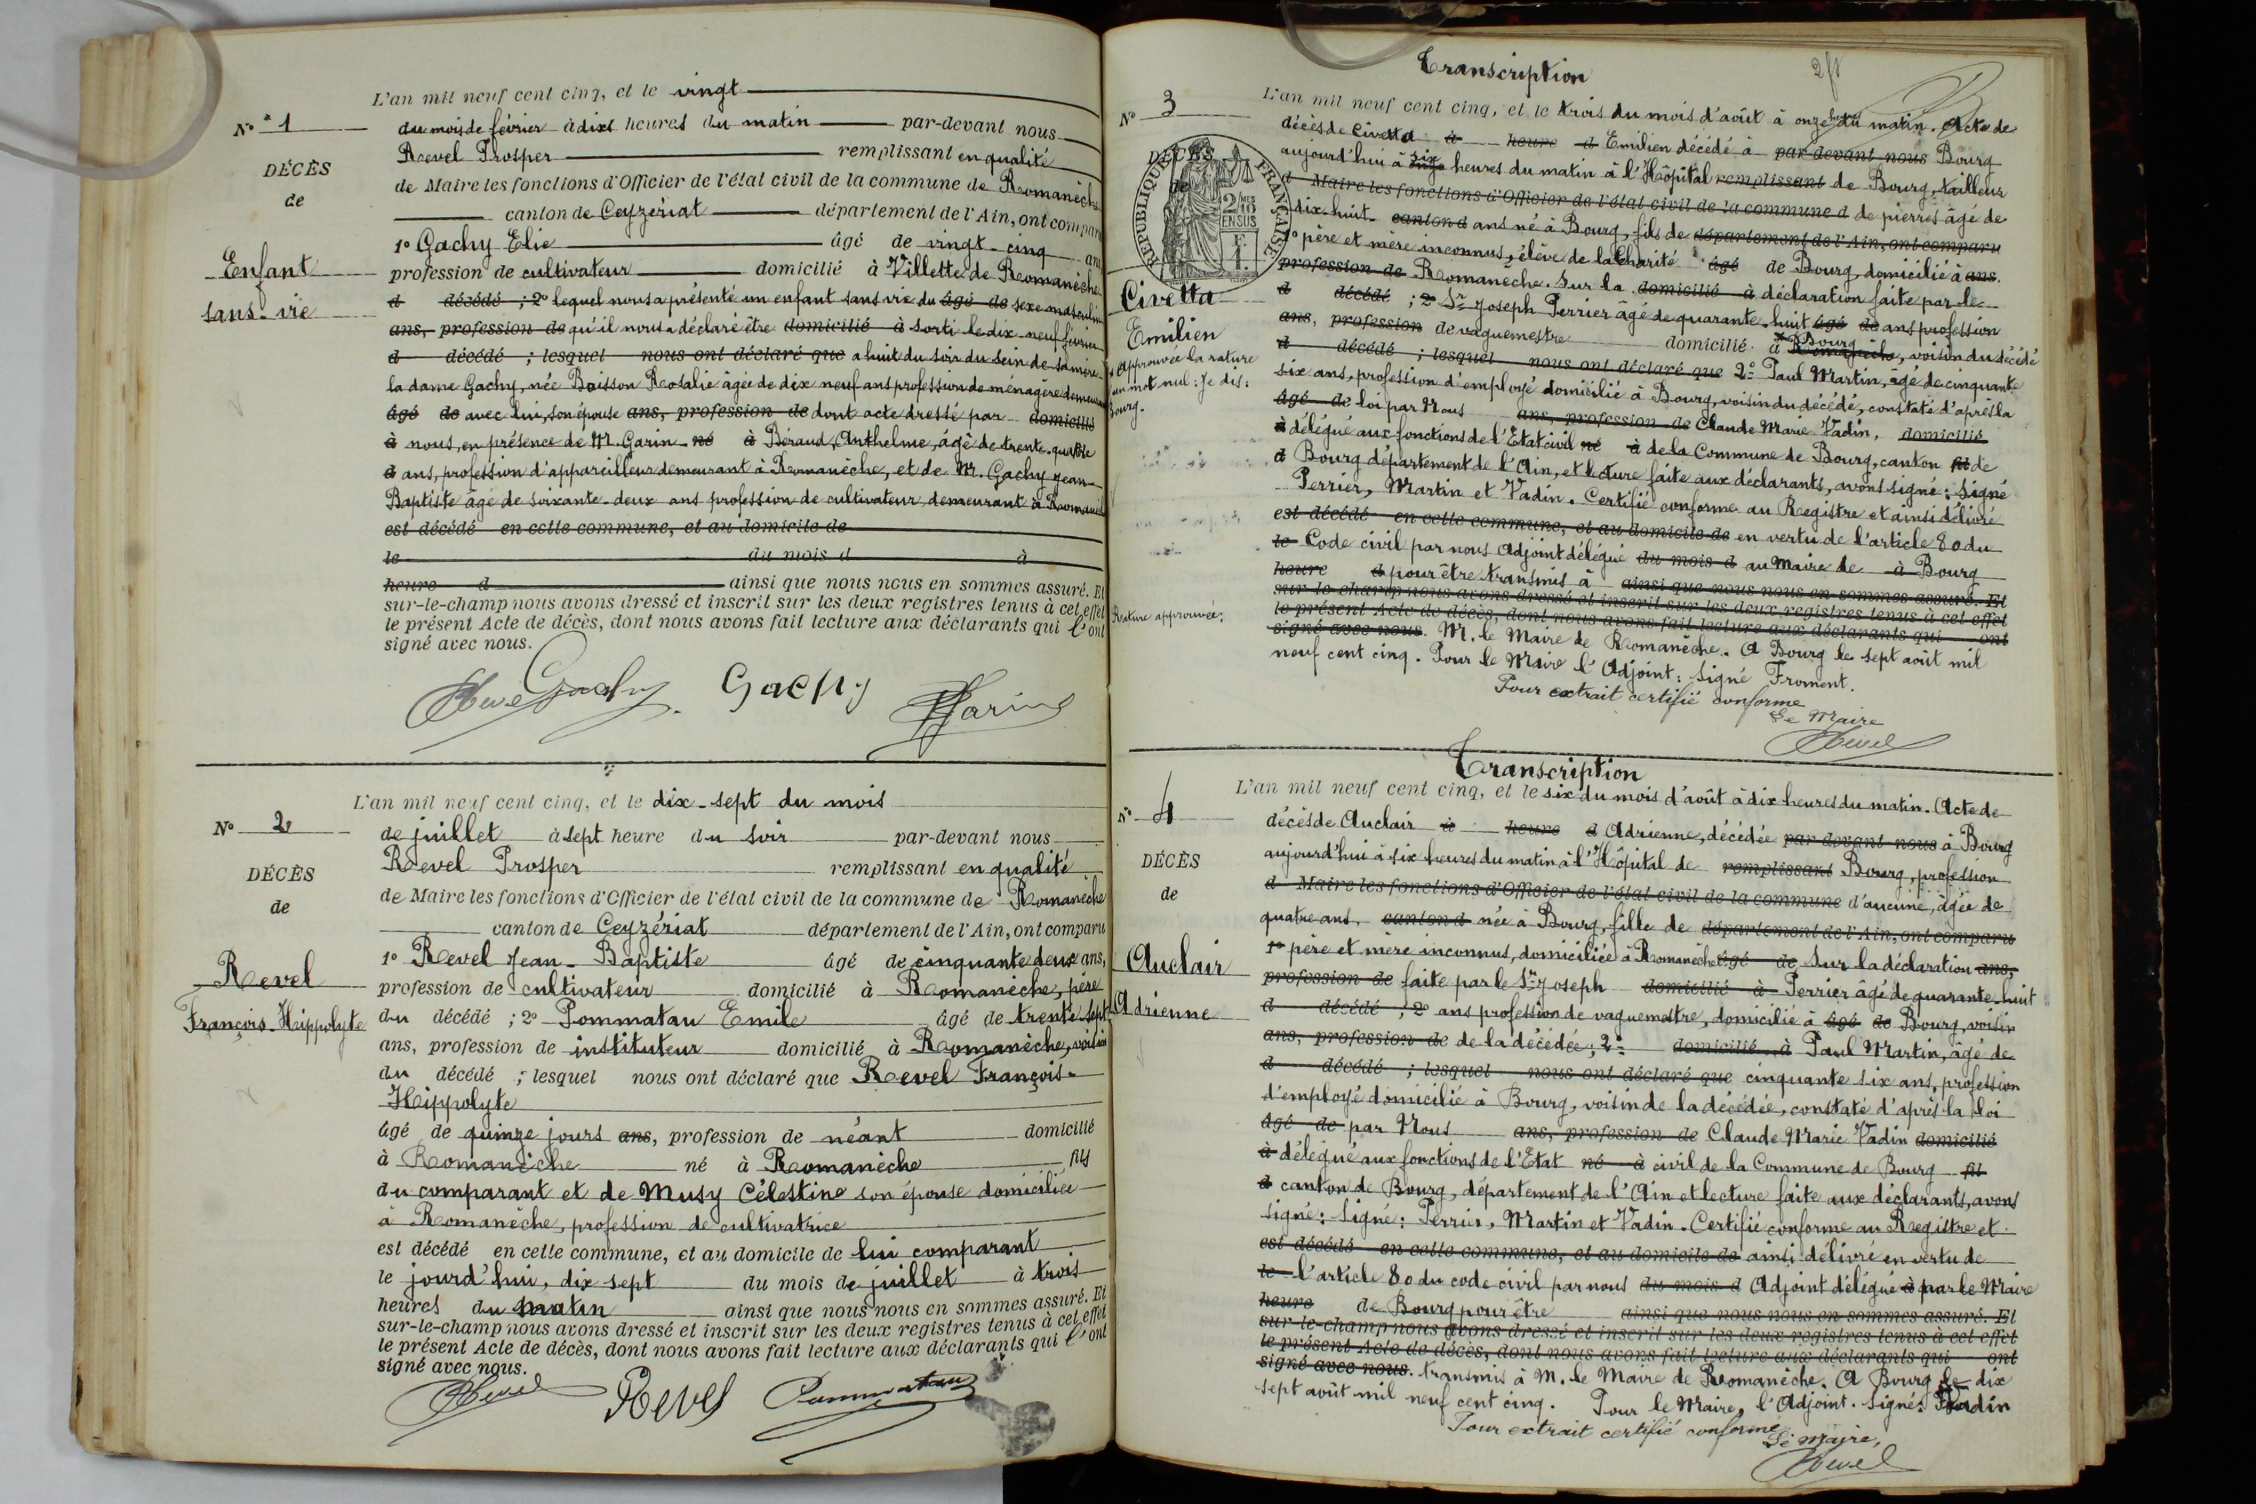 L'an mil neuf cent cinq, et le vingt
N° 1
du mois de février à dix heures du matin par-devant nous
Revel Prosper remplissant en qualité
DÉCÈS
de Maire les fonctions d'Officier de l'état civil de la commune de Romanèche
de
canton de Ceyzériat département de l'Ain, ont comparu
1° Gachy Elie âgé de vingt-cinq ans
Enfant
profession de cultivateur domicilié à Villette de Romanèche
sans vie
d décédé ; 2° lequel nous a présenté un enfant sans vie du âgé de sexe masculin
ans, profession de qu'il nous a déclaré être domicilié à sorti le dix-neuf février
d décédé ; lesquel nous ont déclaré que a huit du soir du sein de sa mère
la dame Gachy, née Boisson Rosalie âgée de dix neuf ans profession de ménagère demeurant
âgé de avec lui, son épouse ans, profession de dont acte dressé par domicilié
à nous, en présence de M. Garin né à Béraud, Anthelme, âgé de trente-quatre
d ans, profession d'appareilleur demeurant à Romanèche, et de M. Gachy Jean
Baptiste âgé de soixante-deux ans profession de cultivateur, demeurant à Romanèche
est décédé en cette commune, et au domicile de
le du mois d à
heure d ainsi que nous nous en sommes assuré. Et
sur-le-champ nous avons dressé et inscrit sur les deux registres tenus à cet effet
le présent Acte de décès, dont nous avons fait lecture aux déclarants qui l'ont
signé avec nous.
Revel Gachy Gachy Garin
L'an mil neuf cent cinq, et le dix-sept du mois
N° 2
de juillet à sept heure du soir par-devant nous
Revel Prosper remplissant en qualité
DÉCÈS
de Maire les fonctions d'Officier de l'état civil de la commune de Romanèche
de
canton de Ceyzériat département de l'Ain, ont comparu
1° Revel Jean-Baptiste âgé de cinquante deux ans,
Revel
profession de cultivateur domicilié à Romanèche, père
François-Hippolyte
du décédé ; 2° Pommatau Emile âgé de trente sept
ans, profession de instituteur domicilié à Romanèche, voisin
du décédé ; lesquel nous ont déclaré que Revel François-
Hippolyte
âgé de quinze jours ans, profession de néant domicilié
à Romanèche né à Romanèche fils
du comparant et de Musy Célestine son épouse domiciliée
à Romanèche, profession de cultivatrice
est décédé en cette commune, et au domicile de lui comparant
le jourd'hui, dix sept du mois de juillet à trois
heures du matin ainsi que nous nous en sommes assuré. Et
sur-le-champ nous avons dressé et inscrit sur les deux registres tenus à cet effet
le présent Acte de décès, dont nous avons fait lecture aux déclarants qui l'ont
signé avec nous.
Revel Revel Pommatau
Transcription
N° 3
L'an mil neuf cent cinq, et le trois du mois d'août à onze h du matin. Acte de
décès de Civetta à heure d Emilien décédé à par devant nous Bourg
DÉCÈS
de
RÉPUBLIQUE FRANÇAISE
2 MES 10 EN SUS
aujourd'hui à six heures du matin à l'Hôpital remplissant de Bourg, tailleur
d Maire les fonctions d'Officier de l'état civil de la commune d de pierres âgé de
dix-huit canton d ans né à Bourg, fils de département de l'Ain, ont comparu
1° père et mère inconnus, élève de la Charité âgé de Bourg, domicilié à ans.
profession de Romanèche. Sur la domicilié à déclaration faite par le
Civetta
d décédé ; 2° Sr Joseph Perrier âgé de quarante-huit âgé de ans profession
Emilien
ans, profession de vaguemestre domicilié à Bourg Romanèche, voisin du décédé
Approuvée la rature
un mot nul : Je dis :
Bourg.
d décédé ; lesquel nous ont déclaré que 2° Paul Martin, âgé de cinquante
six ans, profession d'employé domicilié à Bourg, voisin du décédé, constaté d'après la
âgé de loi par Nous ans, profession de Claude Marie Vadin, domicilié
à délégué aux fonctions de l'Etat civil né à de la Commune de Bourg, canton fil de
d Bourg département de l'Ain, et lecture faite aux déclarants, avons signé : Signé
Perrier, Martin et Vadin. Certifié conforme au Registre et ainsi délivré
est décédé en cette commune, et au domicile de en vertu de l'article 80 du
le Code civil par nous Adjoint délégué du mois d au Maire de à Bourg
heure d pour être transmis à ainsi que nous nous en sommes assuré. Et
sur-le-champ nous avons dressé et inscrit sur les deux registres tenus à cet effet
Rature approuvée.
le présent Acte de décès, dont nous avons fait lecture aux déclarants qui ont
signé avec nous. M. le Maire de Romanèche. A Bourg le sept août mil
neuf cent cinq. Pour le Maire l'Adjoint : Signé Froment.
Pour extrait certifié conforme
Le Maire
Revel
Transcription
L'an mil neuf cent cinq, et le six du mois d'août à dix heures du matin. Acte de
N° 4
décès de Auclair à heure d Adrienne, décédée par devant nous à Bourg
DÉCÈS
aujourd'hui à six heures du matin à l'Hôpital de remplissant Bourg, profession
de
d Maire les fonctions d'Officier de l'état civil de la commune d'aucune, âgée de
quatre ans, canton d née à Bourg, fille de département de l'Ain, ont comparu
Auclair
1° père et mère inconnus, domiciliée à Romanèche âgé de Sur la déclaration ans,
profession de faite par le Sr Joseph domicilié à Perrier âgé de quarante-huit
Adrienne
d décédé ; 2° ans profession de vaguemestre, domicilié à âgé de Bourg, voisin
ans, profession de de la décédée ; 2° domicilié à Paul Martin, âgé de
d décédé ; lesquel nous ont déclaré que cinquante six ans, profession
d'employé domicilié à Bourg, voisin de la décédée, constaté d'après la loi
âgé de par Nous ans, profession de Claude Marie Vadin domicilié
à délégué aux fonctions de l'Etat né à civil de la Commune de Bourg fil
d canton de Bourg, département de l'Ain et lecture faite aux déclarants, avons
signé : Signé : Perrier, Martin et Vadin. Certifié conforme au Registre et
est décédé en cette commune, et au domicile de ainsi délivré en vertu de
le l'article 80 du code civil par nous du mois d Adjoint délégué à par le Maire
heure de Bourg pour être ainsi que nous nous en sommes assuré. Et
sur-le-champ nous avons dressé et inscrit sur les deux registres tenus à cet effet
le présent Acte de décès, dont nous avons fait lecture aux déclarants qui ont
signé avec nous. transmis à M. le Maire de Romanèche. A Bourg le dix
sept août mil neuf cent cinq. Pour le Maire, l'Adjoint. Signé : Vadin
Pour extrait certifié conforme
Le Maire,
Revel